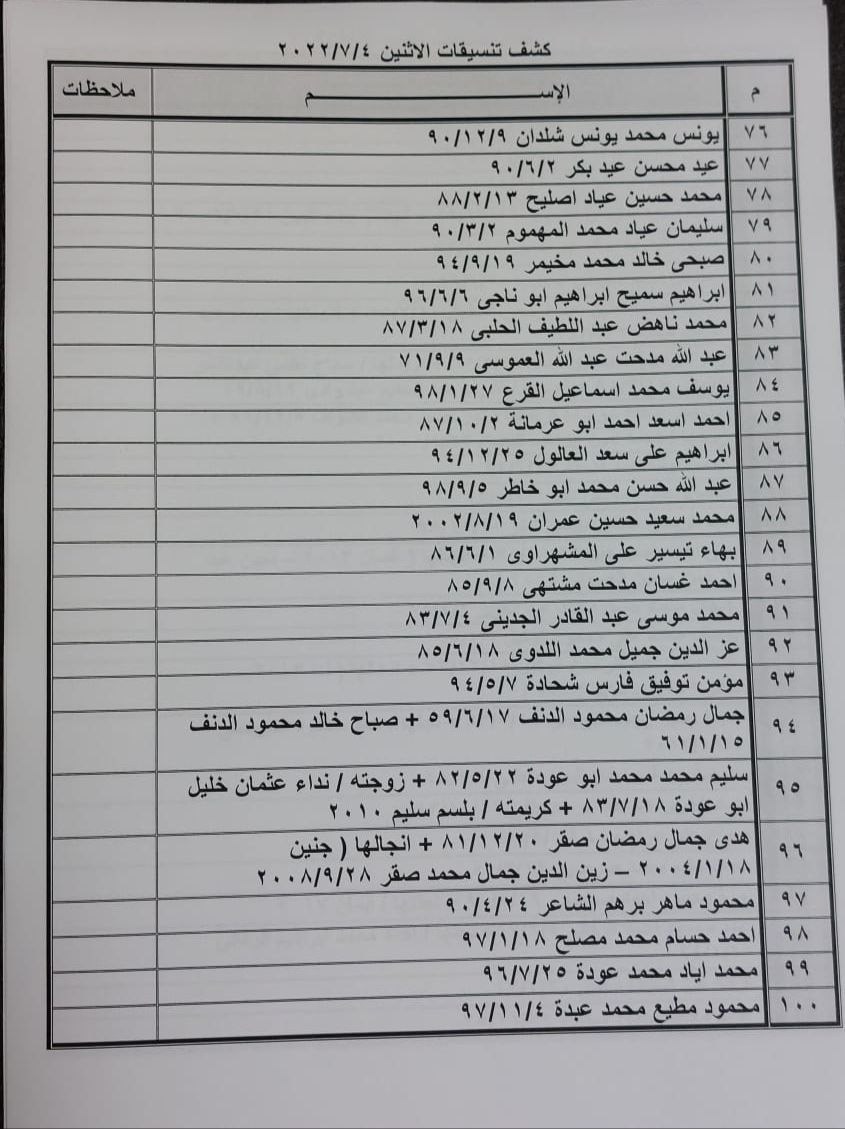 كشف تنسيقات الاثنين ٢٠٢٢/٧/٤
م الإســـــــــــــم ملاحظات
٧٦ يونس محمد يونس شلدان ٩٠/١٢/٩
٧٧ عيد محسن عيد بكر ٩٠/٦/٢
٧٨ محمد حسين عياد اصليح ٨٨/٢/١٣
٧٩ سليمان عياد محمد المهموم ٩٠/٣/٢
٨٠ صبحى خالد محمد مخيمر ٩٤/٩/١٩
٨١ ابراهيم سميح ابراهيم ابو ناجى ٩٦/٦/٦
٨٢ محمد ناهض عبد اللطيف الحلبى ٨٧/٣/١٨
٨٣ عبد الله مدحت عبد الله العموسى ٧١/٩/٩
٨٤ يوسف محمد اسماعيل القرع ٩٨/١/٢٧
٨٥ احمد اسعد احمد ابو عرمانة ٨٧/١٠/٢
٨٦ ابراهيم على سعد العالول ٩٤/١٢/٢٥
٨٧ عبد الله حسن محمد ابو خاطر ٩٨/٩/٥
٨٨ محمد سعيد حسين عمران ٢٠٠٢/٨/١٩
٨٩ بهاء تيسير على المشهراوى ٨٦/٦/١
٩٠ احمد غسان مدحت مشتهى ٨٥/٩/٨
٩١ محمد موسى عبد القادر الجدينى ٨٣/٧/٤
٩٢ عز الدين جميل محمد اللدوى ٨٥/٦/١٨
٩٣ مؤمن توفيق فارس شحادة ٩٤/٥/٧
٩٤ جمال رمضان محمود الدنف ٥٩/٦/١٧ + صباح خالد محمود الدنف
٦١/١/١٥
٩٥ سليم محمد محمد ابو عودة ٨٢/٥/٢٢ + زوجته / نداء عثمان خليل
ابو عودة ٨٣/٧/١٨ + كريمته / بلسم سليم ٢٠١٠
٩٦ هدى جمال رمضان صقر ٨١/١٢/٢٠ + انجالها ( جنين
٢٠٠٤/١/١٨ – زين الدين جمال محمد صقر ٢٠٠٨/٩/٢٨
٩٧ محمود ماهر برهم الشاعر ٩٠/٤/٢٤
٩٨ احمد حسام محمد مصلح ٩٧/١/١٨
٩٩ محمد اياد محمد عودة ٩٦/٧/٢٥
١٠٠ محمود مطيع محمد عبدة ٩٧/١١/٤